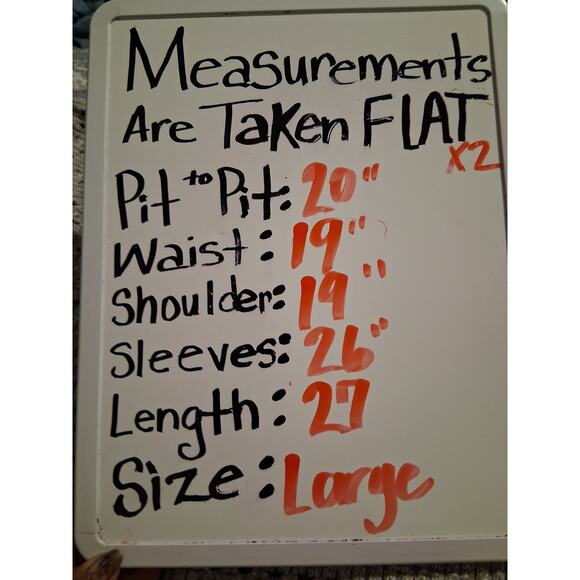 Measurements
Are Taken FLAT
x2
Pit to Pit: 20"
Waist: 19"
Shoulder: 19"
Sleeves: 26"
Length: 27
Size: Large